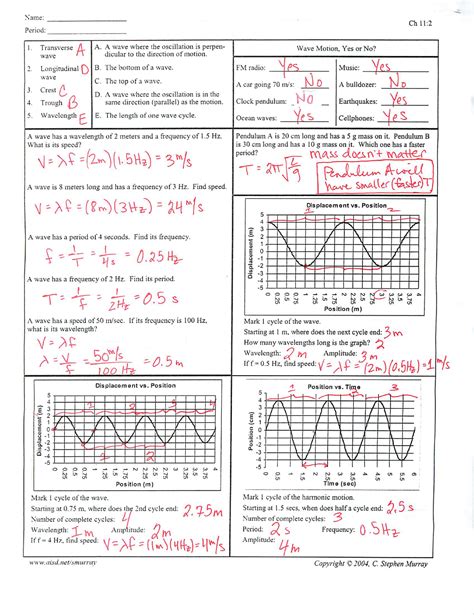 Name:
Ch 11:2
Period:
1. Transverse A
2. Longitudinal D
3. Crest C
4. Trough B
5. Wavelength E
A. A wave where the oscillation is perpen-
dicular to the direction of motion.
B. The bottom of a wave.
C. The top of a wave.
D. A wave where the oscillation is in the
same direction (parallel) as the motion.
E. The length of one wave cycle.
Wave Motion, Yes or No?
FM radio: Yes
Music: Yes
A car going 70 m/s: No
A bulldozer: No
Clock pendulum: No
Earthquakes: Yes
Ocean waves: Yes
Cellphones: Yes
A wave has a wavelength of 2 meters and a frequency of 1.5 Hz.
What is its speed?
V = λf = (2m)(1.5Hz) = 3 m/s
A wave is 8 meters long and has a frequency of 3 Hz. Find speed.
V = λf = (8m)(3Hz) = 24 m/s
A wave has a period of 4 seconds. Find its frequency.
f = 1/T = 1/4s = 0.25 Hz
A wave has a frequency of 2 Hz. Find its period.
T = 1/f = 1/2Hz = 0.5 s
A wave has a speed of 50 m/sec. If its frequency is 100 Hz,
what is its wavelength?
V = λf
λ = V/f = 50 m/s / 100 Hz = 0.5m
Pendulum A is 20 cm long and has a 5 g mass on it. Pendulum B
is 30 cm long and has a 10 g mass on it. Which one has a faster
period? mass doesn't matter
T = 2π√L/g
Pendulum A will
have smaller (faster) T
Displacement vs. Position
Wave Displacement (m)
5
4
3
2
1
0
-1
-2
-3
-4
-5
0 0.25 0.5 0.75 1 1.25 1.5 1.75 2 2.25 2.5 2.75 3 3.25 3.5 3.75 4
Position (m)
Mark 1 cycle of the wave.
Starting at 1 m, where does the next cycle end: 3m
How many wavelengths long is the graph? 2
Wavelength: 2m Amplitude: 3m
If f = 0.5 Hz, find speed: V = λf = (2m)(0.5Hz) = 1 m/s
Displacement vs. Position
Displacement (m)
5
4
3
2
1
0
-1
-2
-3
-4
-5
0 0.25 0.5 0.75 1 1.25 1.5 1.75 2 2.25 2.5 2.75 3 3.25 3.5 3.75 4
Position (m)
Mark 1 cycle of the wave.
Starting at 0.75 m, where does the 2nd cycle end: 2.75m
Number of complete cycles: 4
Wavelength: 1m Amplitude: 2m
If f = 4 Hz, find speed: V = λf = (1m)(4Hz) = 4 m/s
Position vs. Time
5
4
3
2
1
0
-1
-2
-3
-4
-5
Time (sec)
Mark 1 cycle of the harmonic motion.
Starting at 1.5 sec, when does half of a cycle end: 2.5s
Number of complete cycles: 3
Period: 2s Frequency: 0.5Hz
Amplitude: 4m
www.aisd.net/smurray
Copyright © 2004, C. Stephen Murray